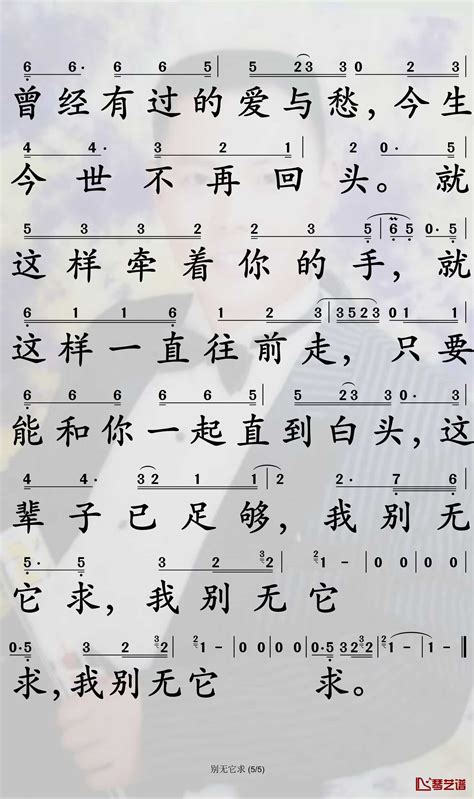 6 6· 6 6 5 | 5 23 3 | 0 2 3
曾经有过的爱与愁,今生
4 4· 3 2 1 | 0·5
今世不再回头。就
5 3 3 2 2 3 3 5 | 65 0·5
这样牵着你的手,就
6 1 1 1 6 1 2 3 | 3523 01 1
这样一直往前走,只要
6 6 6 6 6 6 5 3 2 | 0 3
能和你一起直到白头,这
4 4· 32 1 1 | 2· 7 6
辈子已足够,我别无
5· 5 3 2 2 32 | 21 - | 00 | 00
它求,我别无它
0·5 3 2 2 32 | 21 - | 00 | 00 | 01 | 1 -
求,我别无它 求。
别无它求 (5/5)
琴艺谱